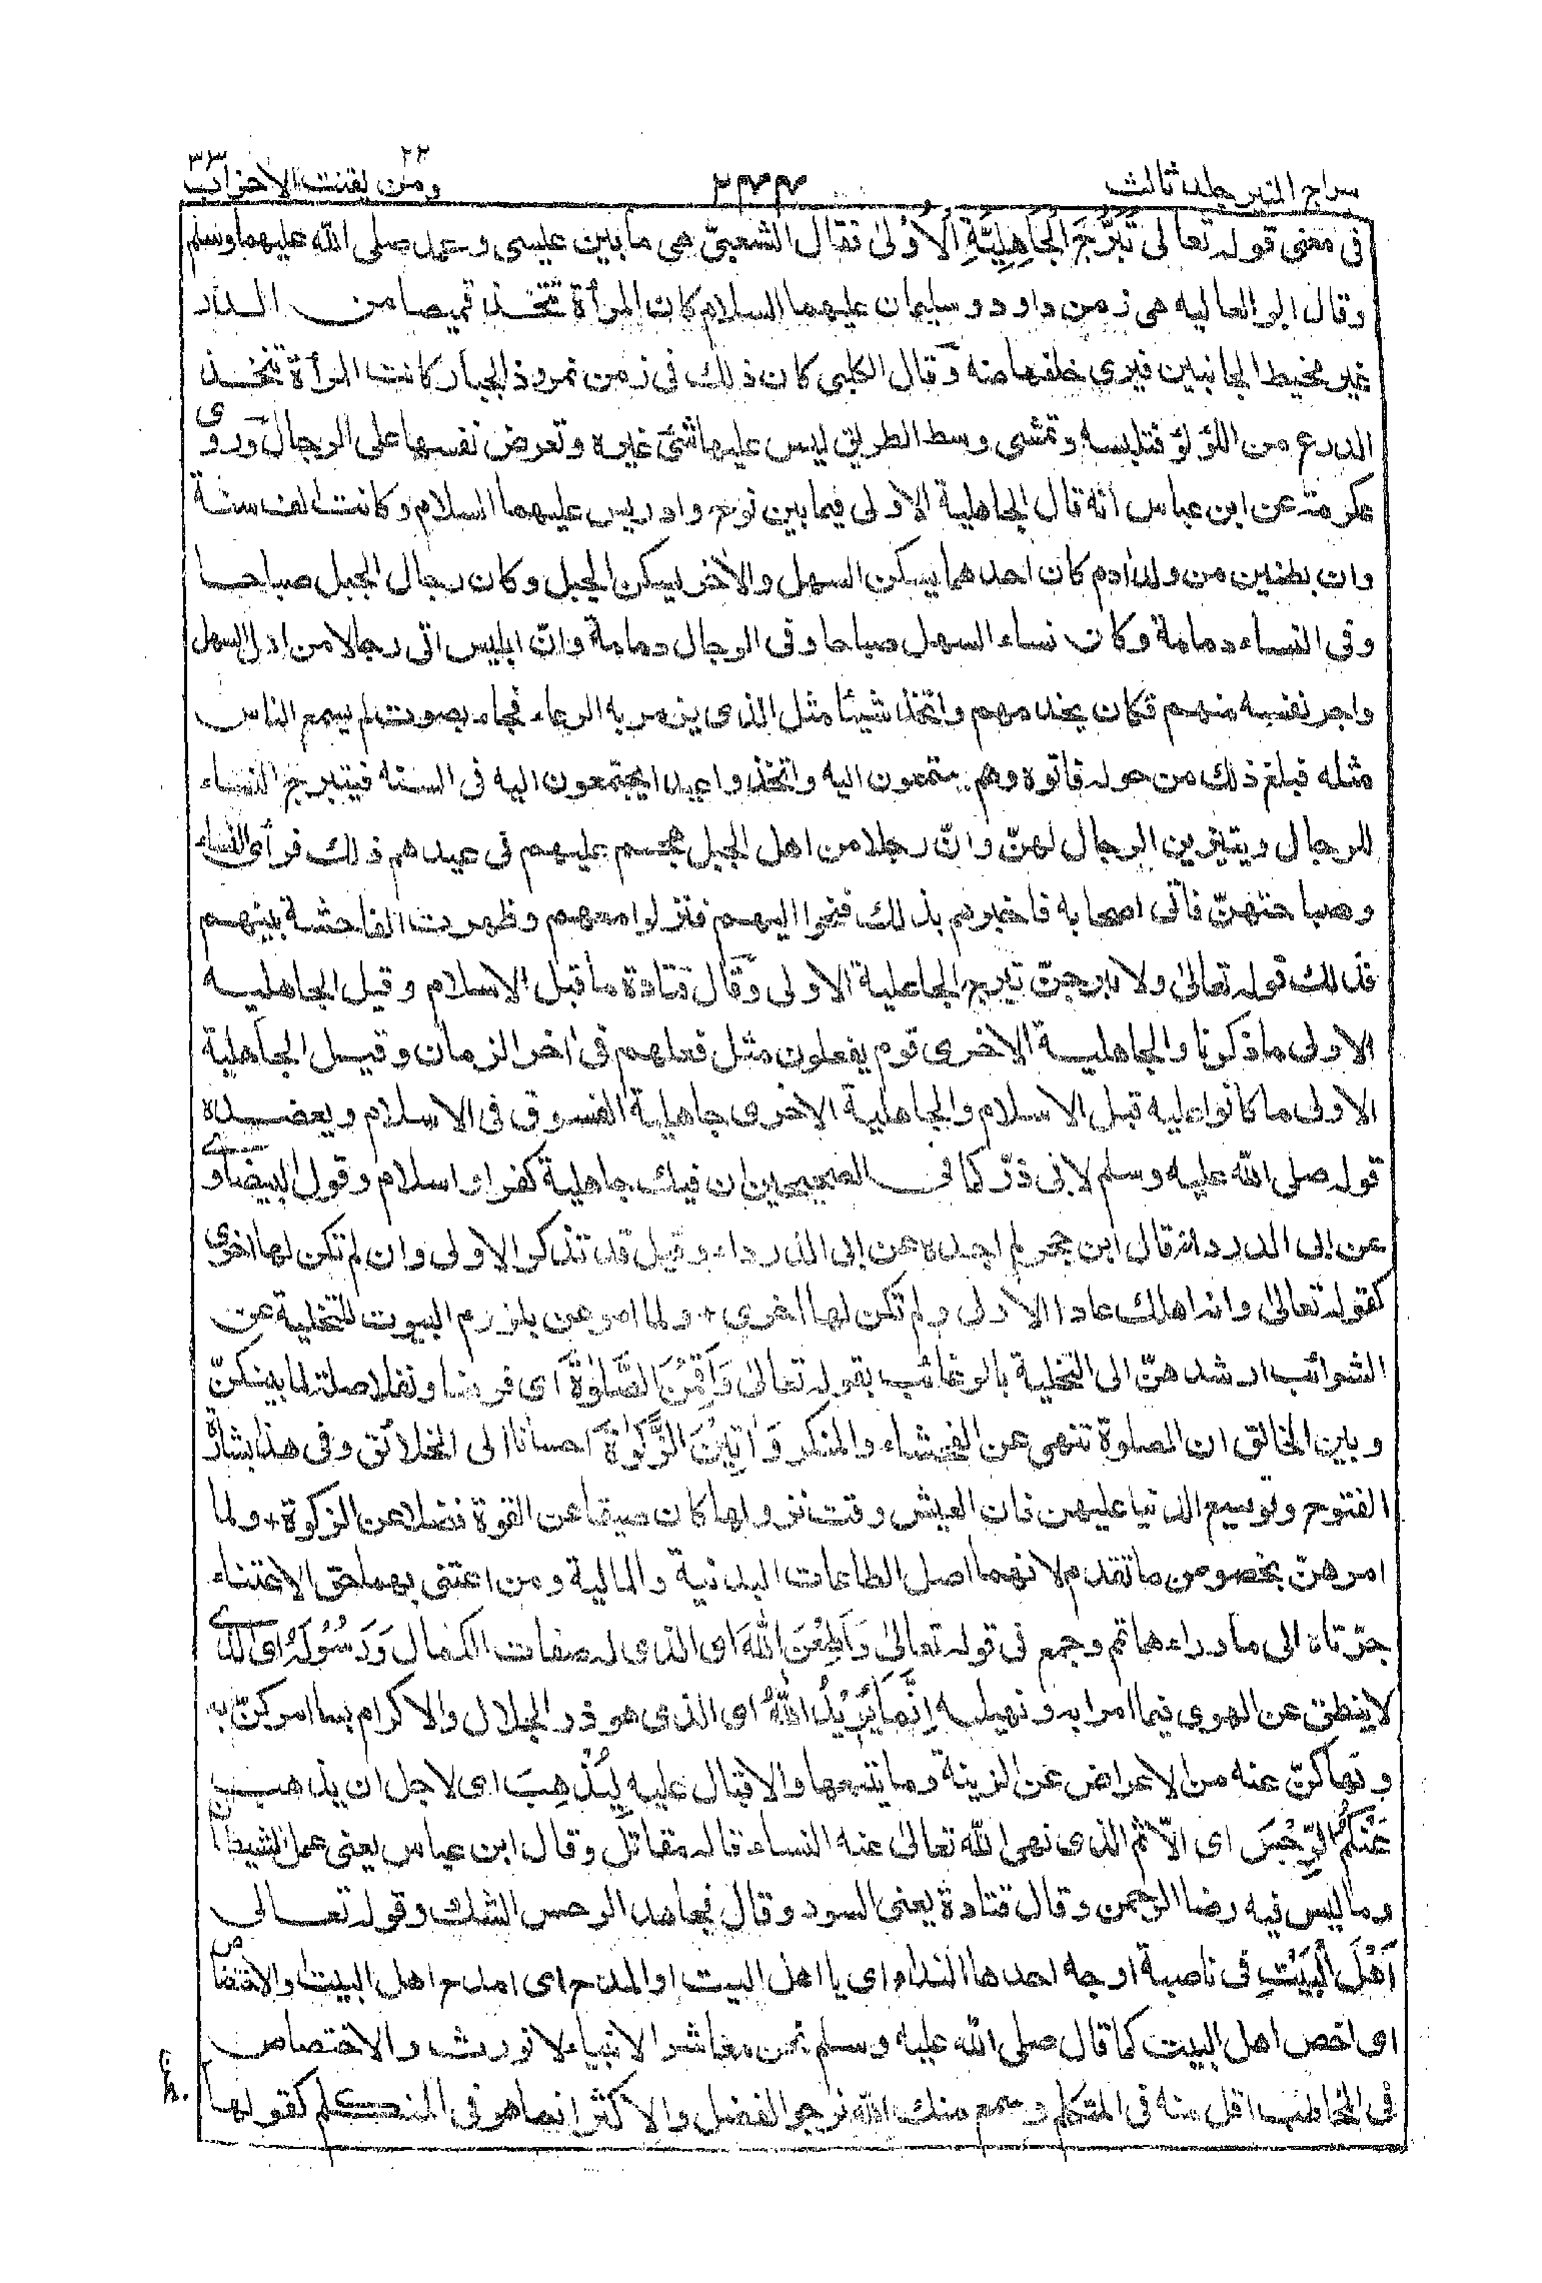 سراج المنير جلد ثالث
٢٤٤
ومن يقنت ٢٢ الاحزاب ٣٣
فى معنى قوله تعالى تَبَرُّجَ الْجَاهِلِيَّةِ الْأُوْلىٰ فقال الشعبىّ هى ما بين عيسى ومحمد صلى الله عليهما وسلم
وقال ابو العاليه هى زمن داود وسليمان عليهما السلام كان المرأة تتخذ قميصا من الدر
غير مخيط الجانبين فيرى خلقها منه وقال الكلبى كان ذلك فى زمن نمروذ الجبار كانت المرأة تتخذ
الدرع من اللؤلؤ فتلبسه وتمشى وسط الطريق ليس عليها شئ غيره وتعرض نفسها على الرجال وروى
عكرمة عن ابن عباس أنه قال الجاهلية الاولى فيما بين نوح وادريس عليهما السلام وكانت الف سنة
وان بطنين من ولد أدم كان احدهما يسكن السهل والأخر يسكن الجبل وكان رجال الجبل صباحا
وفى النساء دمامة وكان نساء السهل صباحا وفى الرجال دمامة وانّ ابليس اتى رجلا من اهل السهل
واجر نفسه منهم فكان يخدمهم واتخذ شيئا مثل الذى يزمر به الرعاء فجاء بصوت لم يسمع الناس
مثله فبلغ ذلك من حوله فاتوه وهم يستمعون اليه واتخذوا عيدا يجتمعون اليه فى السنة فيتبرج النساء
للرجال ويتزين الرجال لهنّ وانّ رجلا من اهل الجبل هجم عليهم فى عيدهم ذلك فرأى النساء
وصباحتهنّ فأتى اصحابه فاخبرهم بذلك فنحوا اليهم فنزلوا معهم وظهرت الفاحشة بينهم
فذلك قوله تعالىٰ ولا تبرجن تبرج الجاهلية الاولى وقال قتادة ما قبل الاسلام وقيل الجاهلية
الاولى ما ذكرنا والجاهلية الاخرى قوم يفعلون مثل فعلهم فى أخر الزمان وقيل الجاهلية
الاولى ما كانوا عليه قبل الاسلام والجاهلية الاخرى جاهلية الفسوق فى الاسلام ويعضده
قوله صلى الله عليه وسلم لابى ذرّ كما فى الصحيحين ان فيك جاهلية كفر او اسلام وقول البيضاوى
عن ابى الدرداء قال ابن حجر لم اجده عن ابى الدرداء وقيل قد تذكر الاولى وان لم تكن لها اخرى
كقوله تعالىٰ وانه اهلك عادا الاولى ولم تكن لها اخرى + ولما امرهن بلزوم البيوت للتخلية عن
الشوائب ارشدهنّ الى التحلية بالرغائب بقوله تعالىٰ وَاَقِمْنَ الصَّلٰوةَ اى فرضا ونفلا صلة لما بينكنّ
وبين الخالق ان الصلوة تنهى عن الفحشاء والمنكر وَاٰتِيْنَ الزَّكٰوةَ احسانا الى الخلائق وفى هذا بشارة
الفتوح وتوسيع الدنيا عليهن فان العيش وقت نزولها كان ضيقا عن القوة فضلا عن الزكوة + ولما
امرهنّ بخصوص ما تقدم لانهما اصل الطاعات البدنية والمالية ومن اعتنى بهما حق الاعتناء
جرّتاه الى ما وراءهما تم وجمع فى قوله تعالىٰ وَاَطِعْنَ اللهَ اى الذى له صفات الكمال وَرَسُوْلَهٗ اى الذى
لا ينطق عن الهوى فيما امرا به ونهيا عنه اِنَّمَا يُرِيْدُ اللهُ اى الذى هو ذو الجلال والاكرام بما امركنّ به
ونهاكنّ عنه من الاعراض عن الزينة وما يتبعها والاقبال عليه لِيُذْهِبَ اى لاجل ان يذهب
عَنْكُمُ الرِّجْسَ اى الاثم الذى نهى الله تعالىٰ عنه النساء قاله مقاتل وقال ابن عباس يعنى عمل الشيطان
وما ليس فيه رضا الرحمن وقال قتادة يعنى السوء وقال مجاهد الرجس الشك وقوله تعالى
اَهْلَ الْبَيْتِ فى ناصبه اوجه احدها النداء اى يا اهل البيت او المدح اى امدح اهل البيت والاختصاص
اى اخص اهل البيت كما قال صلى الله عليه وسلم نحن معاشر الانبياء لا نورث والاختصاص
فى المخاطب اقل منه فى المتكلم وسمع منك الله نرجو الفضل والاكثر انما هو فى المتكلم كقولها